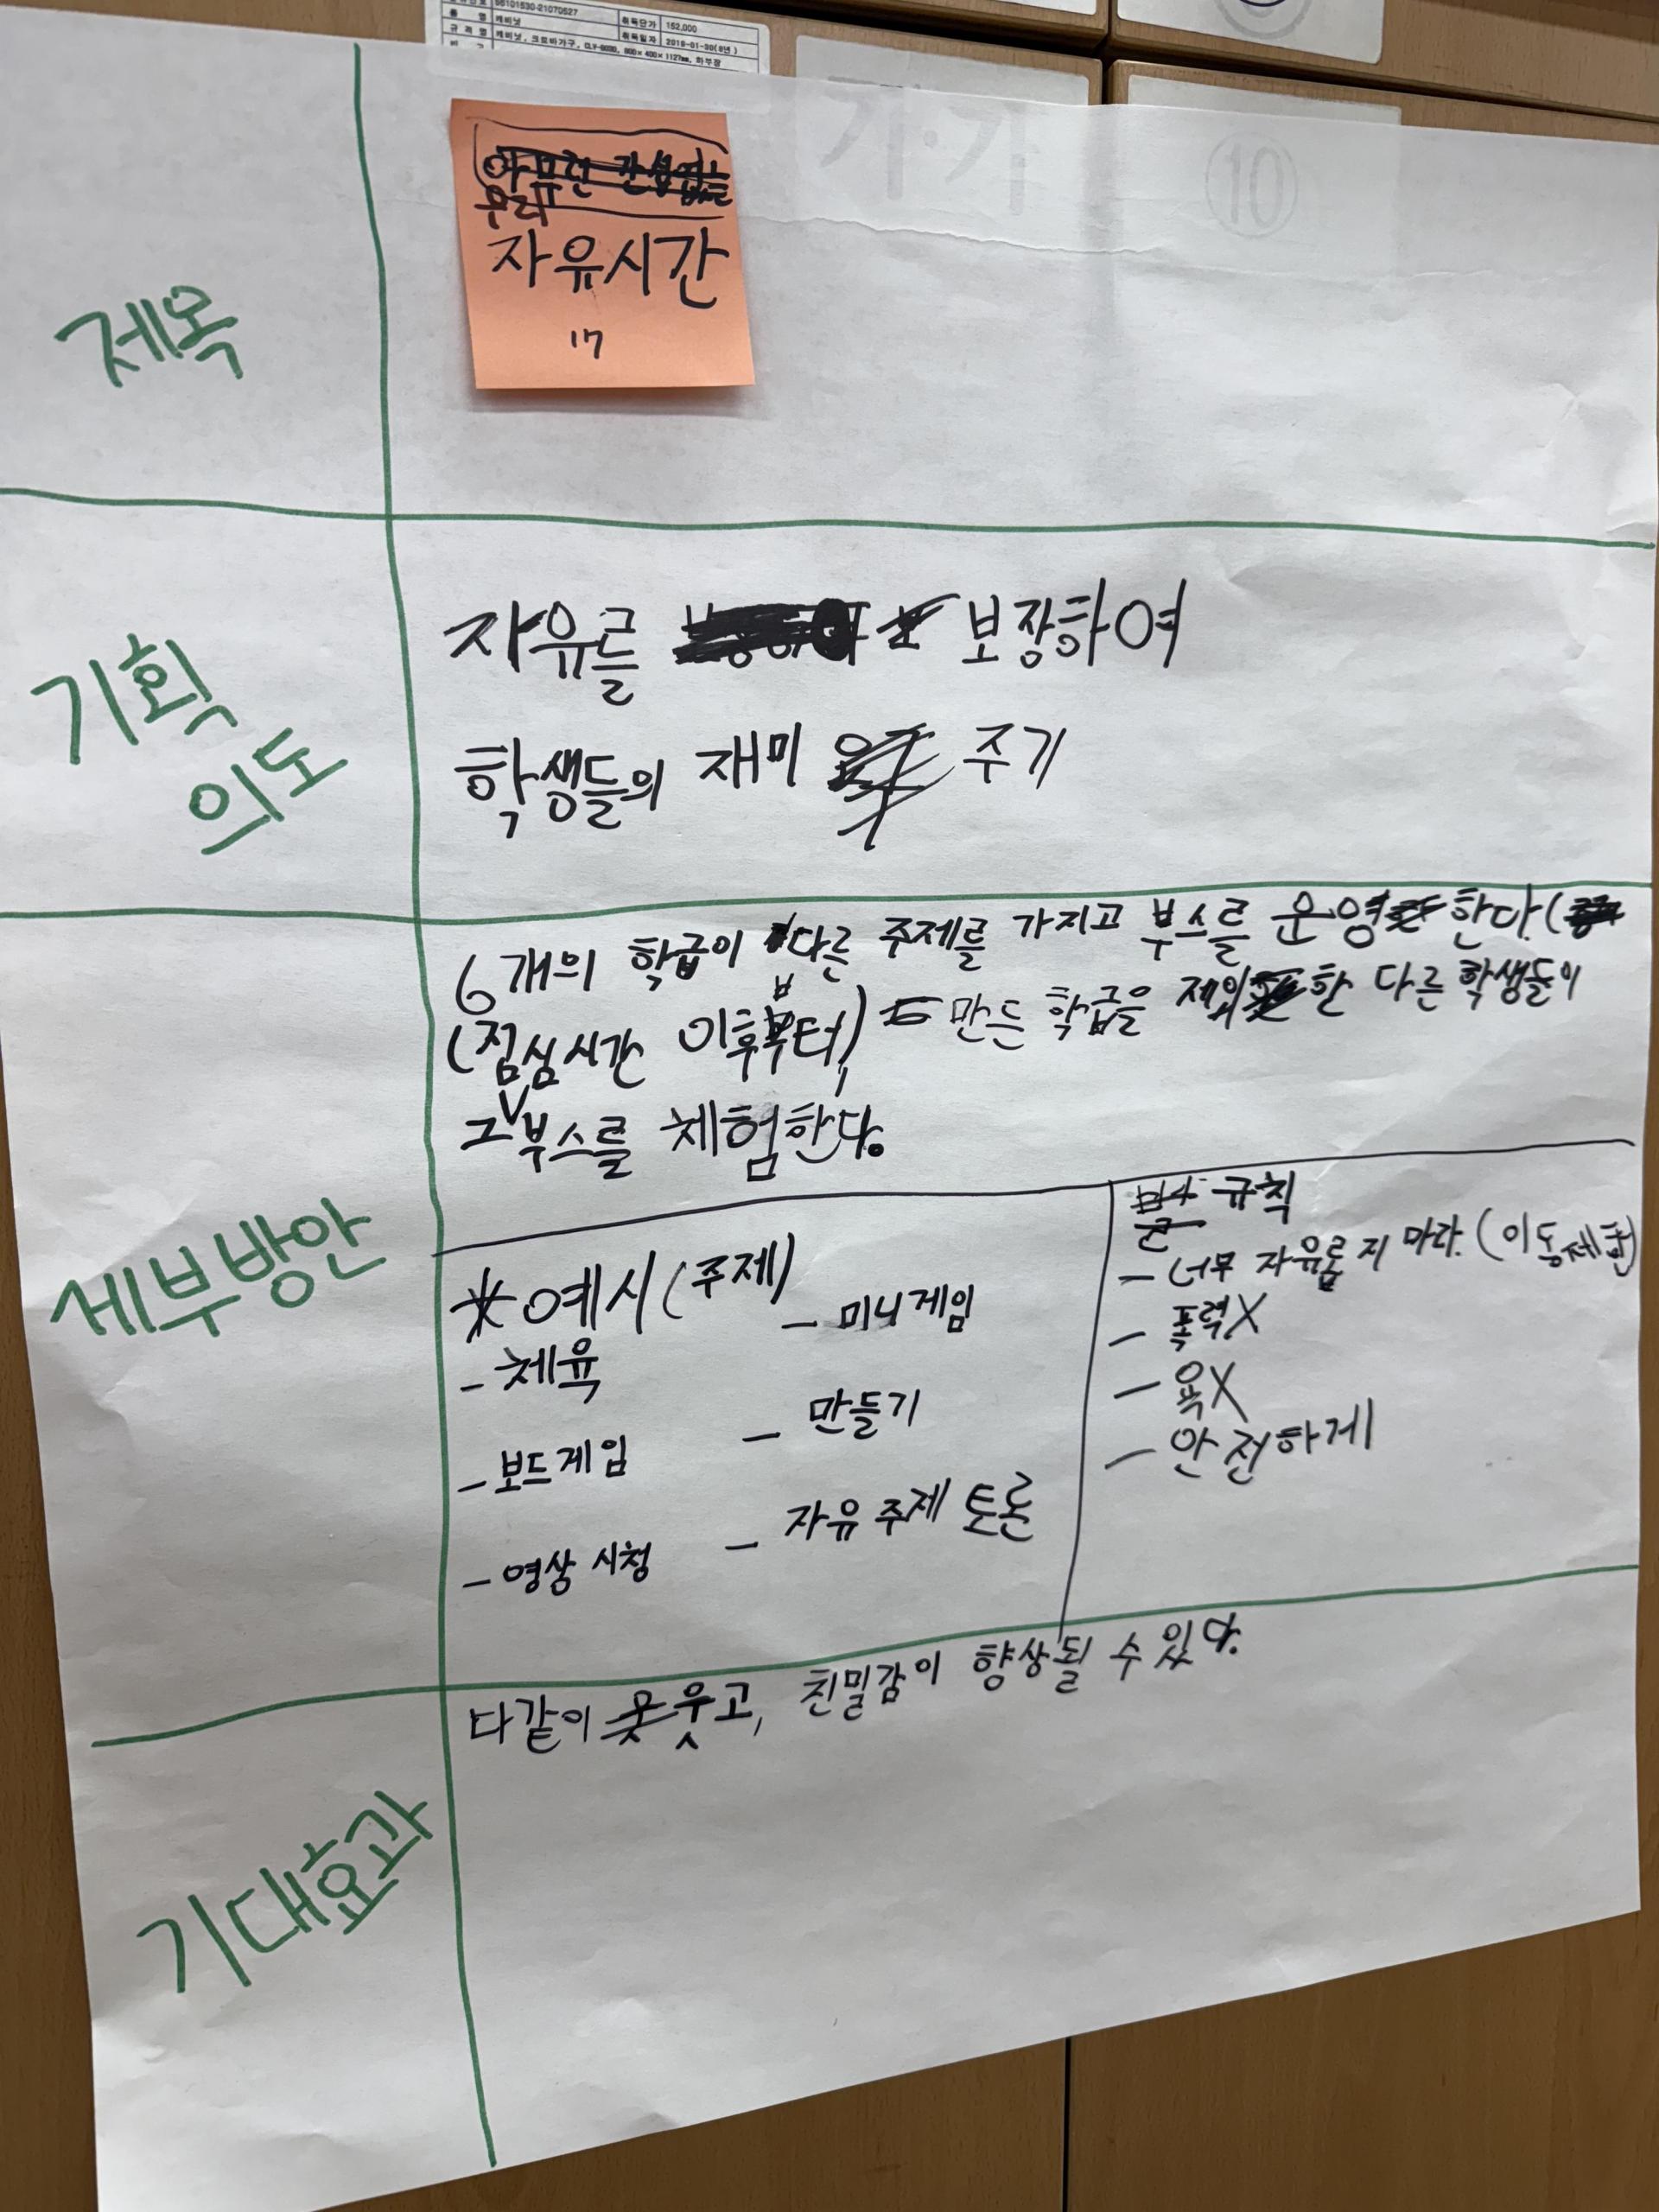 품 명 캐비닛
취득단가 152,000
규 격 명 캐비닛, 크로바가구, CLV-603D, 800×400×1127mm, 하부장
취득일자 2018-01-30(8년)
가·가
10
제목
우리
자유시간
17
기획
의도
자유를 보장하여
학생들의 재미 주기
세부방안
6개의 학급이 다른 주제를 가지고 부스를 운영한다.(
(점심시간 이후부터) 만든 학급을 제외한 다른 학생들이
그 부스를 체험한다.
*예시(주제)
- 체육
- 보드게임
- 영상 시청
- 미니게임
- 만들기
- 자유 주제 토론
규칙
- 너무 자유롭지 마라. (이동제한)
- 폭력X
- 욕X
- 안전하게
기대효과
다같이 웃고, 친밀감이 향상될 수 있다.